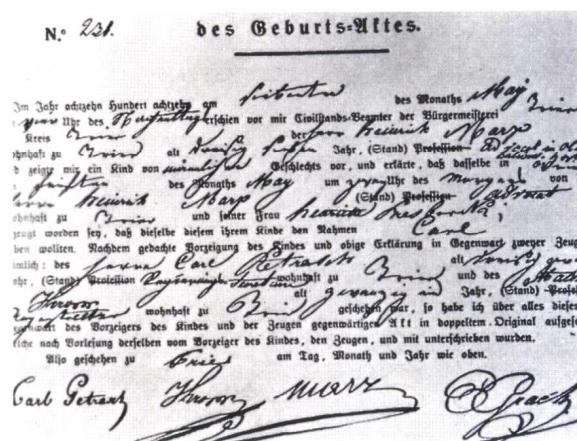 N.º 231. des Geburts-Aktes.
Im Jahr achtzehn Hundert achtzehn am siebenten des Monaths May
vier Uhr des Nachmittags erschien vor mir Civilstands-Beamter der Bürgermeisterei Trier
Kreis Trier der Herr Heinrich Marx
wohnhaft zu Trier alt Jahr, (Stand) Profession
zeigte mir ein Kind von männlichen Geschlechts vor, und erklärte, daß dasselbe
fünften des Monaths May um zwey Uhr des Morgens von
Herrn Heinrich Marx (Stand) Profession advocat
wohnhaft zu Trier und seiner Frau Henriette Presborck,
zeugt worden sey, daß dieselbe diesem ihrem Kinde den Nahmen Carl
ben wollten. Nachdem gedachte Vorzeigung des Kindes und obige Erklärung in Gegenwart zweyer Zeug
mlich: des Herrn Carl Petrasch alt
ahr, (Stand) Profession wohnhaft zu Trier und des
alt Jahr, (Stand) Profes
wohnhaft zu Trier geschehen war, so habe ich über alles diese
egenwart des Vorzeigers des Kindes und der Zeugen gegenwärtigen Akt in doppeltem Original aufgese
lche nach Vorlesung derselben vom Vorzeiger des Kindes, den Zeugen, und mit unterschrieben wurden.
Also geschehen zu Trier am Tag, Monath und Jahr wie oben.
Carl Petrasch Marx